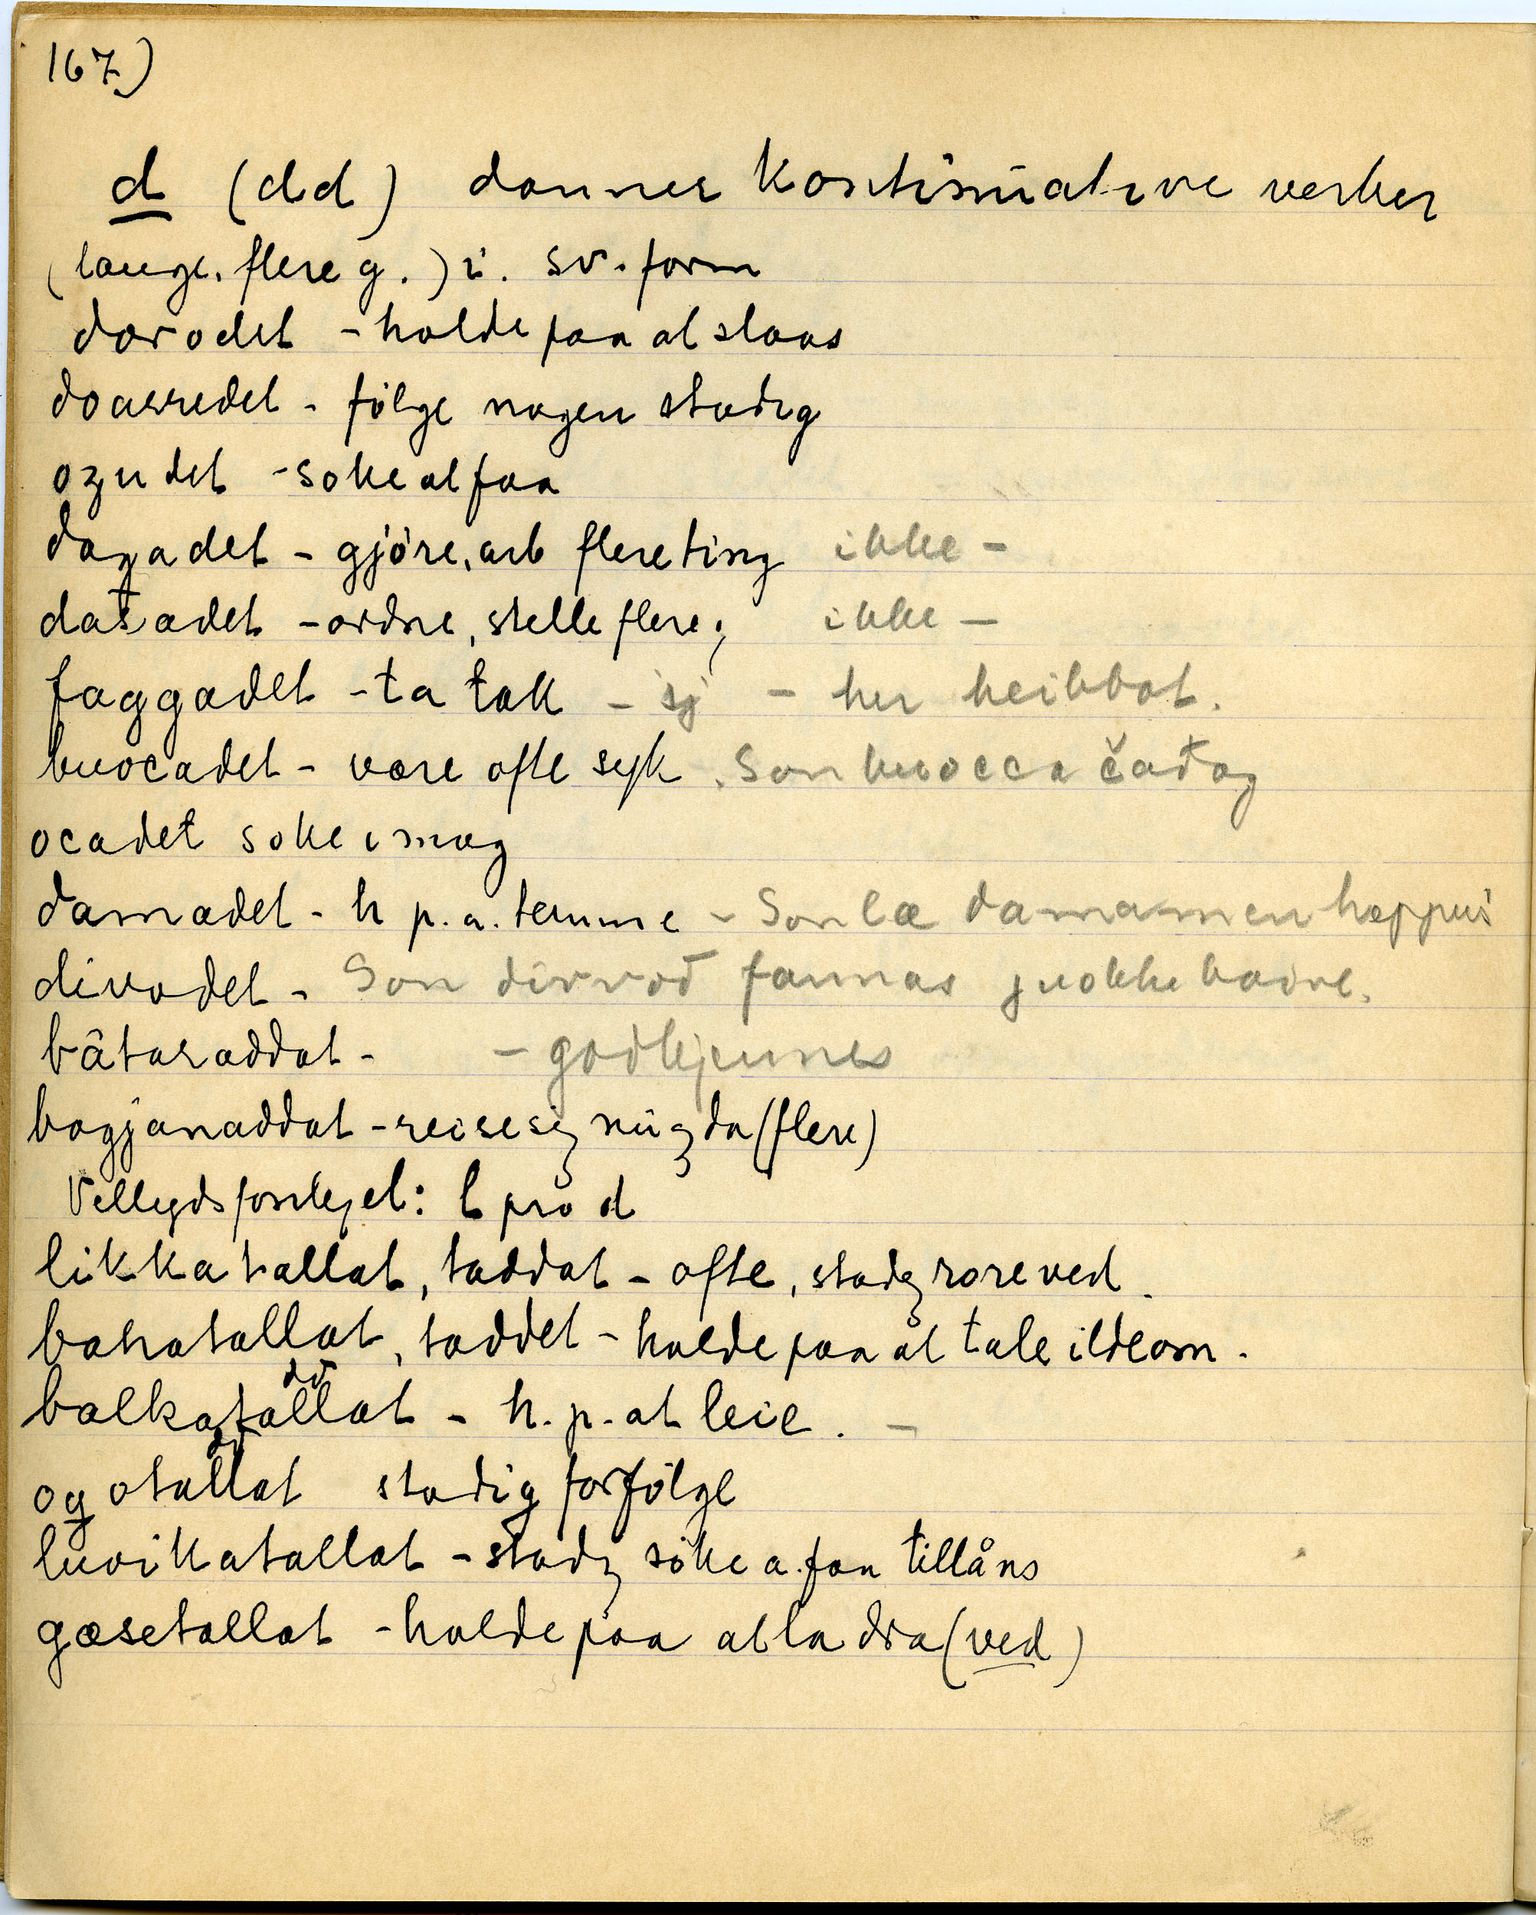 167)
d (dd) danner kontinuative verber
(lange, flere g.) i. sv. form
dorodet - holde paa at slaas
doarredet - følge nogen stadig
ozudet - søke at faa
dagadet - gjøre, arb flere ting ikke -
datadet - ordne, stelle flere g ikke -
faggadet - ta tak - sj - her heibbot.
buocadet - være ofte syk. Son buocca čađag
ocadet søke i mag
damadet - h p. a. temme - Son læ damamen hæppuš
divodet - Son divvod fannas juokke baivve.
bâtaraddat - - godkjennes
bogjanaddat - reise sig nu g da (flere)
Vellydsforskjel: t pro d
likkatallat, taddat - ofte, stadig røre ved.
bahatallat, taddet - holde paa at tale ilde om.
balkatallat - h. p. at leie. -
dd
ogotallat stadig forfølge
dd
luoikatallat - stadig søke a. faa tillåns
gæsetallat - holde paa at la dra (ved)